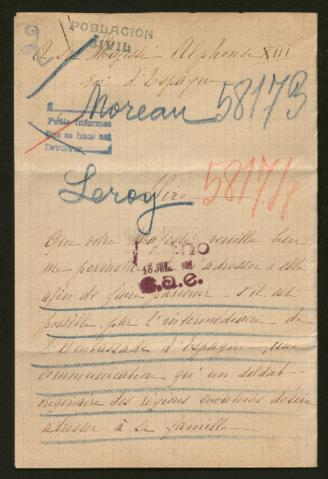 POBLACION
CIVIL
2
A Sa Majesté Alphonse XIII
roi d'Espagne
Moreau 58173
Pedir informes
Devolver
Leroy Sire 58174
Que votre Majesté veuille bien
me permettre adresser à elle
13 JUL.
S.a.e.
afin de faire parvenir s'il est
possible, par l'intermédiaire de
l'Ambassade d'Espagne, une
communication qu'un soldat
originaire des régions envahies désire
adresser à sa famille